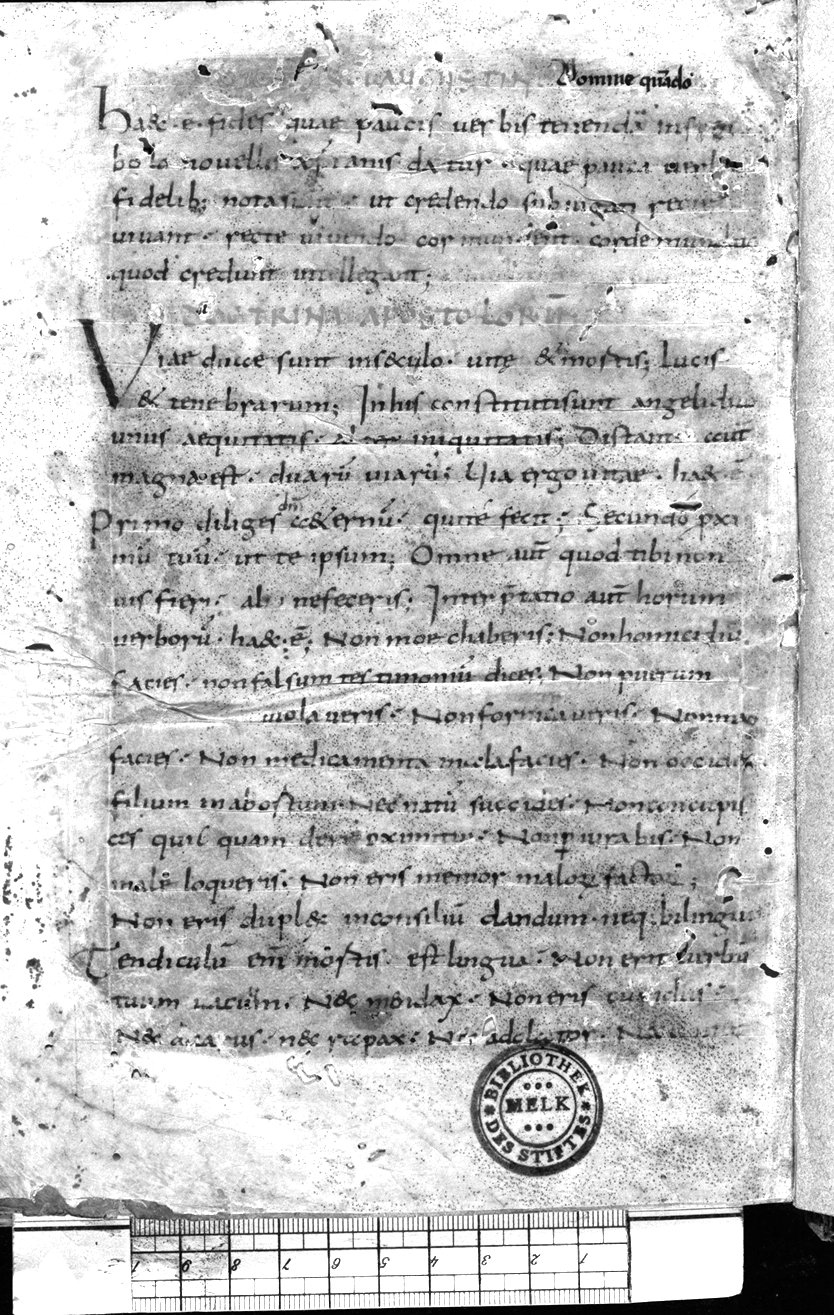 S. AUGUSTIN Domine quādo
ha&. ē. fides quae paucis verbis tenenda in
bola novellis xp̄ianis datur. quae pauca verba
fidelib; nota sunt. ut credendo subiugati
vivant. recte vivendo cor mundent. corde mundo
quod credunt intellegant;
DOCTRINA APOSTOLORŪ
Viae duae sunt in sęculo. vitę & mortis; lucis
& tenebrarum; In his constituti sunt angeli duo
unus aequitatis. alter iniquitatis; Distantia aut
magna est. duarū viarū; Via ergo vitae. ha& ē
Primo diliges dm̄ aeternū. qui te fecit; Secundo pxi
mū tuū. ut te ipsum; Omne aut̄ quod tibi non
vis fieri. alii ne feceris; Interp̄tatio aut̄ horum
verborū. ha& ē; Non moechaberis; Non homicidiū
facies. non falsum testimoniū dices; Non puerum
violaveris. Non fornicaveris. Non mag
facies. Non medicamenta mala facies. Non occides
filium in abortum. Nec natū succides. Non concupis
ces quic quam de re pximi tui. Non piurabis. Non
male loqueris. Non eris memor malorū factorū;
Non eris duplex in consiliū dandum. neq; bilinguis
Tendiculū em̄ mortis. est lingua. Non erit verbū
tuum vacuum. Nec mendax. Non eris cupidus
Nec avarus. nec rapax. Nec adolator. Nec
BIBLIOTHEK
MELK
DES STIFTES
1 2 3 4 5 6 7 8 9